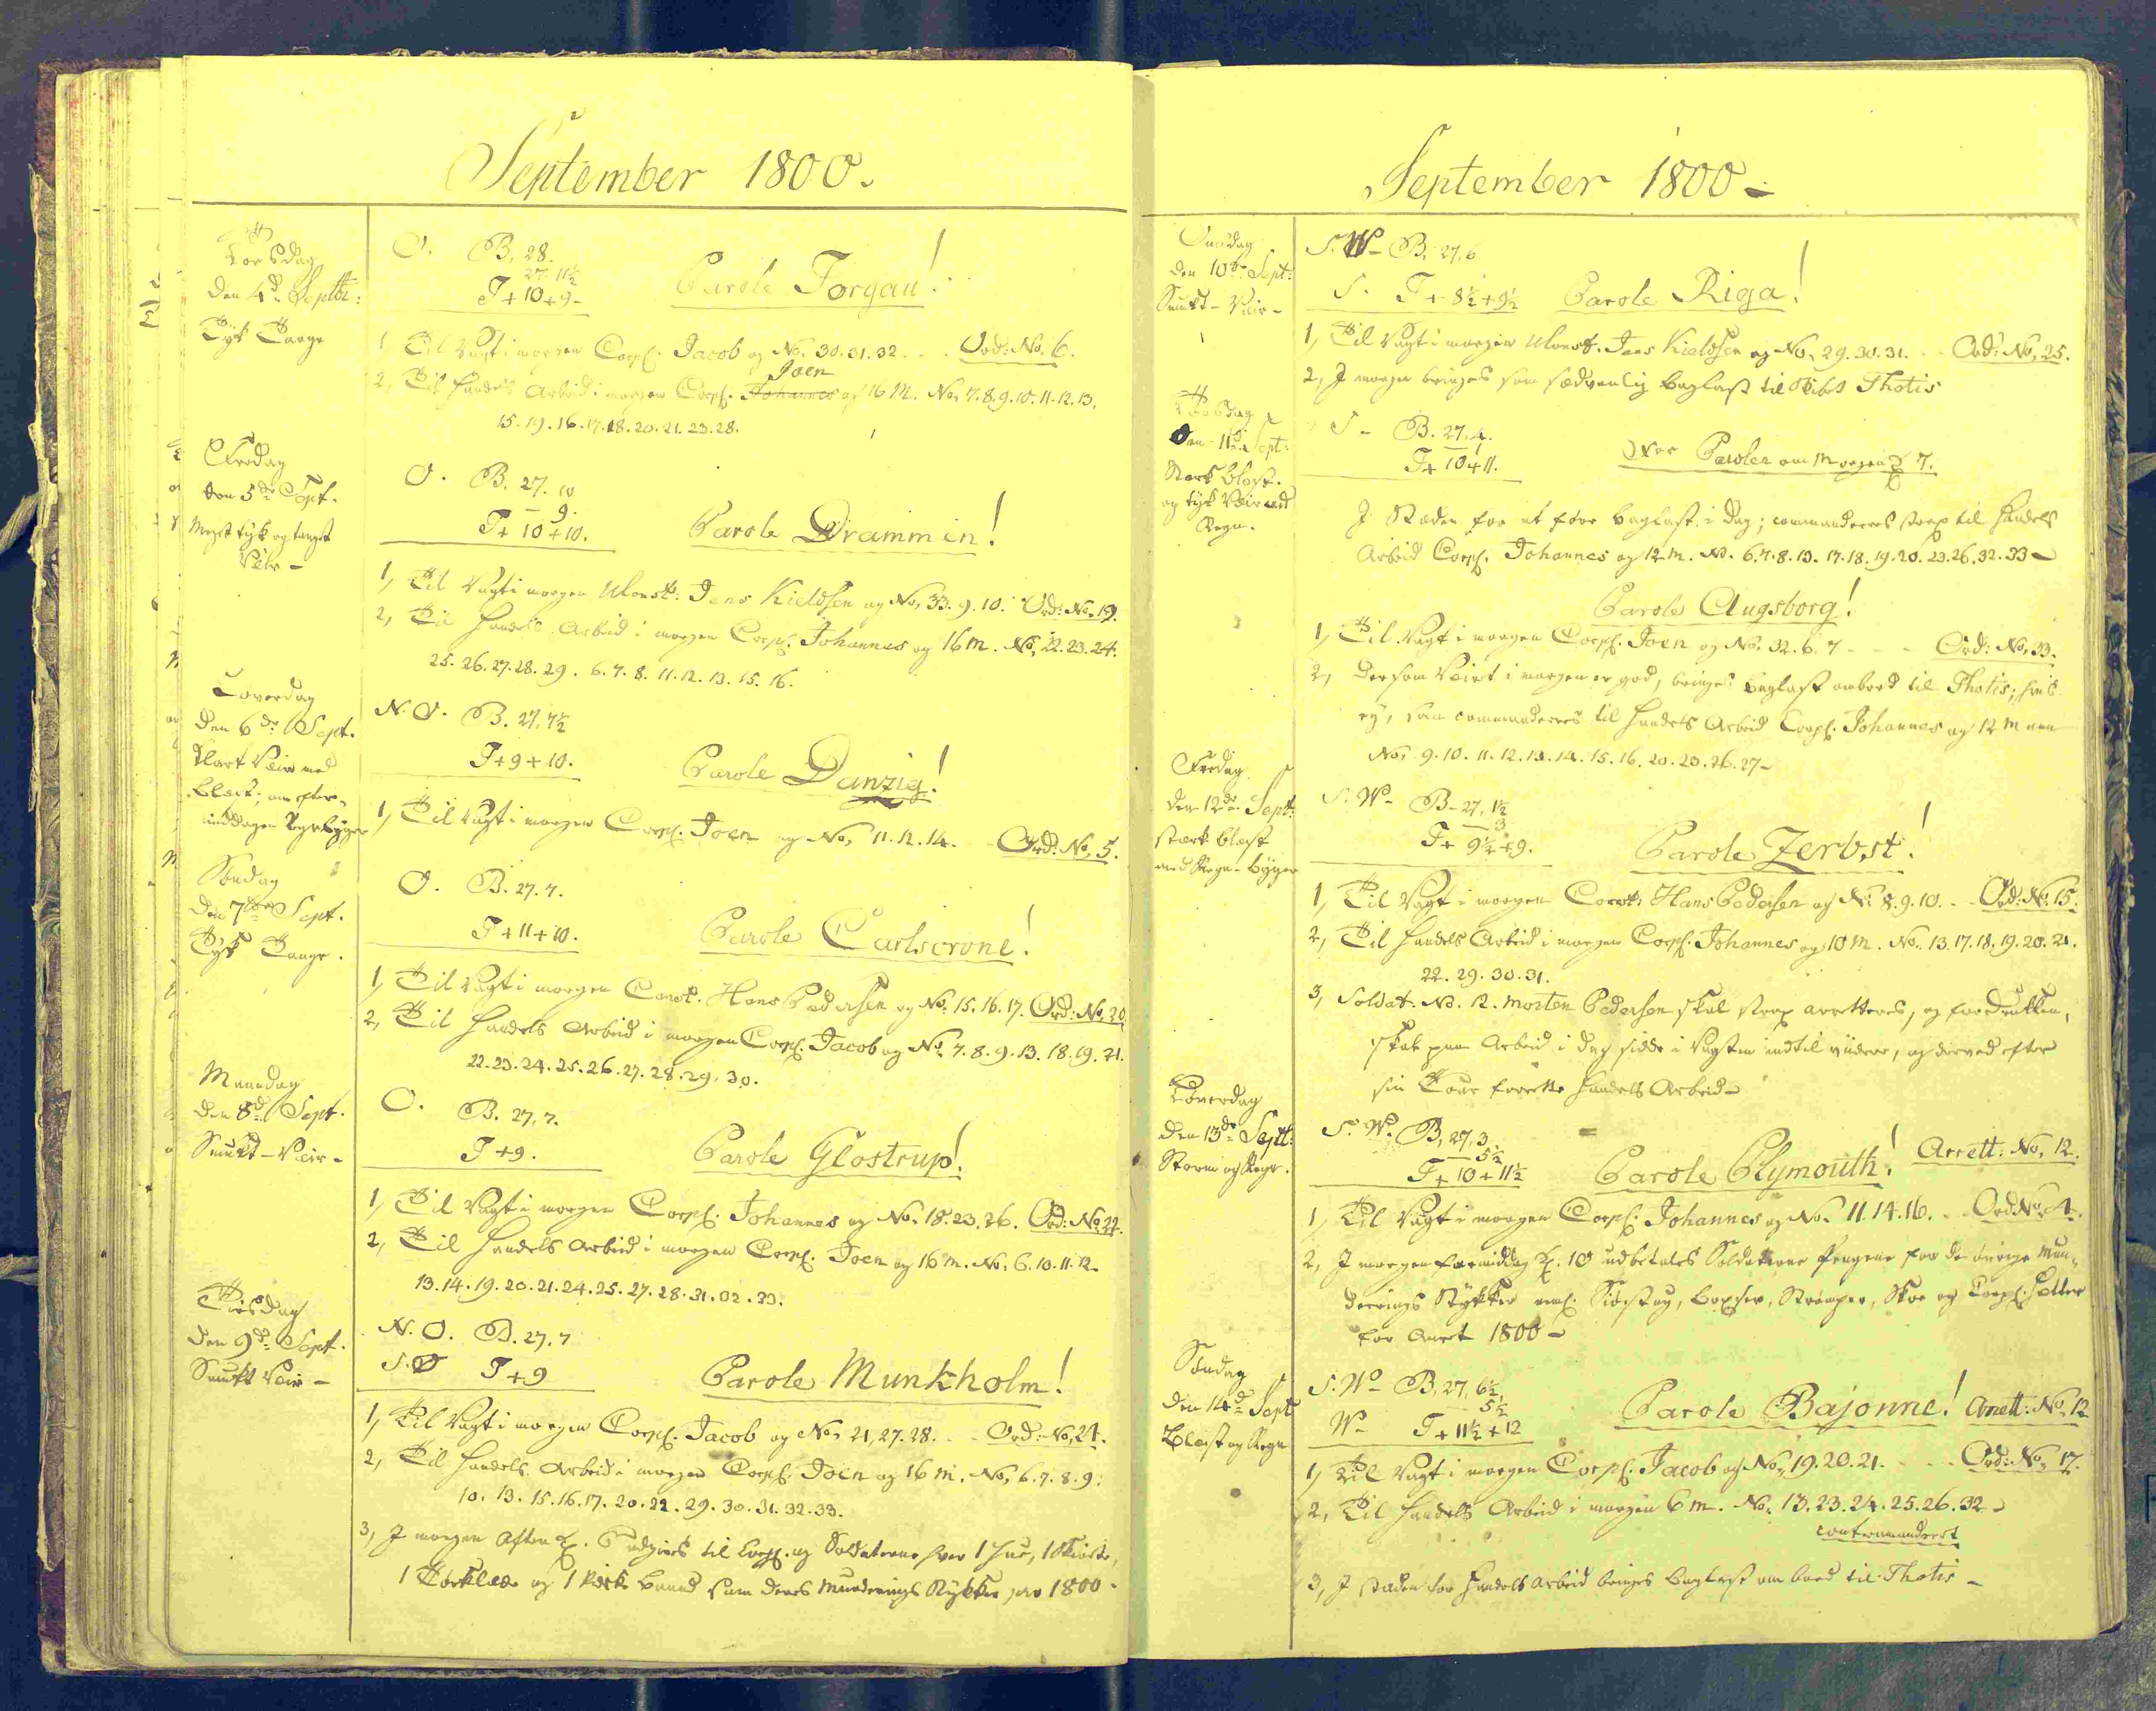 September 1800.
Torsdag
den 4de Septbr:
Tyk Taage
O. B. 28.
27. 11½
T + 10 + 9 -
Parole Torgau!
1 Til Vagt i morgen Corpl. Jacob og No. 30. 31. 32. - . Ord: No. 6.
Joen
2, Til Handels Arbeid i morgen Corpl. Johannes og 16 M. No. 7. 8. 9. 10. 11. 12. 13.
15. 19. 16. 17. 18. 20. 21. 23. 28.
Fredag
den 5de Sept.
Meget tyk og taaget
Veir -
O. B. 27. 10
- 9.
T + 10 + 10.
Parole Drammin!
1, Til Vagt i morgen Jens Kieldsen og No. 33. 9. 10. Ord: No. 19.
2, Til Handels Arbeid i morgen Corpl. Johannes og 16 M. No. 22. 23. 24.
25. 26. 27. 28. 29. 6. 7. 8. 11. 12. 13. 15. 16.
Loverdag
den 6te Sept.
Klart Veir med
Blæst; om efter-
middagen Regnbyger
N. O. B. 27, 7½
T + 9 + 10.
Parole Danzig!
1, Til Vagt i morgen Corpl. Joen og No. 11. 12. 14. Ord: No. 5.
Søndag
den 7de Sept.
Tyk Taage.
O. B. 27. 7.
T + 11 + 10.
Parole Carlscrone!
1, Til Vagt i morgen Const. Hans Pedersen og No. 15. 16. 17. Ord: No. 20
2, Til Handels Arbeid i morgen Corpl. Jacob og No. 7. 8. 9. 13. 18. 19. 21.
22. 23. 24. 25. 26. 27. 28. 29. 30.
Mandag
den 8de Sept.
Smukt - Veir -
O. B. 27, 7.
T + 9.
Parole Glostrup!
1, Til Vagt i morgen Corpl. Johannes og No. 18. 23. 26. Ord: No. 22.
2, Til Handels Arbeid i morgen Corpl. Joen og 16 M. No. 6. 10. 11. 12.
13. 14. 19. 20. 21. 24. 25. 27. 28. 31. 32. 33.
Tirsdag
den 9de Sept.
Smukt Veir -
N. O. B. 27. 7
S. O T + 9
Parole Munkholm!
1, Til Vagt i morgen Corpl. Jacob og No. 21, 27. 28. - Ord: No. 24.
2, Til Handels Arbeid i morgen Corpl. Joen og 16 M. No. 6. 7. 8. 9.
10. 13. 15. 16. 17. 20. 22. 29. 30. 31. 32. 33.
3, I morgen Aften Kl. 5 udgives til Corpl. og Soldaterne hver 1 Hue, 1 Skiorte,
1 Tørklæde og 1 Baand som deres Munderings Stykker pro 1800 -
September 1800 -
Onsdag
den 10de Sept:
Smukt - Veir -
S. W - B. 27, 6
S. T + 8½ + 9½
Parole Riga!
1, Til Vagt i morgen Jens Kieldsen og No. 29. 30. 31. - Ord: No. 25.
2, I morgen bringes som sædvanlig Baglast til Skibet Thetis
Torsdag
den 11te Sept:
Stærk Blæst.
og tyk Veir med
Regn.
S - B. 27, 4.
T + 10 + 11.
For Parolen om Morgen Kl 7.
I Stæden for at føre Baglast i Dag; commanderes strax til Handels
Arbeid Corpl. Johannes og 12 M. No. 6. 7. 8. 13. 17. 18. 19. 20. 23. 26. 32. 33 -
Parole Augsborg!
1, Til Vagt i morgen Corpl. Joen og No. 32. 6. 7 - - - Ord: No. 33.
2, dersom Veiret i morgen er god, bringes Baglast ombord til Thetis; hvis
ey, saa commanderes til Handels Arbeid Corpl. Johannes og 12 Mænd
No. 9. 10. 11. 12. 13. 14. 15. 16. 20. 23. 26. 27 -
Fredag
den 12de Sept:
stærk Blæst
med Regn - byger
S. W - B - 27, 1½
- 3
T + 9½ + 9.
Parole Zerbst!
1, Til Vagt i morgen Const: Hans Pedersen og No. 8. 9. 10. - Ord: No. 15.
2, Til Handels Arbeid i morgen Corpl. Johannes og 10 M. No. 13. 17. 18. 19. 20. 21.
22. 29. 30. 31.
3, Soldat No. 12. Morten Pedersen skal strax arretteres, og for Drukken-
skab paa Arbeid i Dag sidde i Vagten indtil viidere, og derved efter
sin Tour forrette Handels Arbeid -
Loverdag
den 13de Sept:
Storm og Regn.
S. W. B, 27, 3
- 5½
T + 10 + 11½
Parole Plymouth! Arrett: No. 12.
1, Til Vagt i morgen Corpl. Johannes og No. 11. 14. 16. - Ord No. 4.
2, I morgen formiddag Kl. 10 udbetales Soldaterne Pengene for de øvrige Mun-
derings Stykker Buxser, Strømper, Skoe og Corpl. Hatter
for Aaret 1800 -
Søndag
den 14de Sept
Blæst og Regn
S. W - B. 27, 6½,
5½
W - T + 11½ + 12
Parole Bajonne! Arrett: No. 12
1, Til Vagt i morgen Corpl. Jacob og No. 19. 20. 21. - - Ord: No. 17.
2, Til Handels Arbeid i morgen 6 M. No. 13. 23. 24. 25. 26. 32 -
contramandeert
3, I stæden for Handels Arbeid bringes Baglast om bord til Thetis -